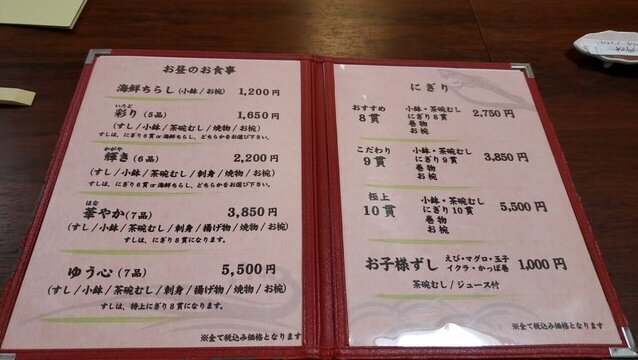 お昼のお食事
海鮮ちらし(小鉢/お椀) 1,200円
いろど
彩り(5品) 1,650円
(すし/小鉢/茶碗むし/焼物/お椀)
すしは、にぎり6貫or海鮮ちらし、どちらかをお選び下さい。
かがや
輝き(6品) 2,200円
(すし/小鉢/茶碗むし/刺身/焼物/お椀)
すしは、にぎり6貫or海鮮ちらし、どちらかをお選び下さい。
はな
華やか(7品) 3,850円
(すし/小鉢/茶碗むし/刺身/揚げ物/焼物/お椀)
すしは、にぎり8貫になります。
ゆう心(7品) 5,500円
(すし/小鉢/茶碗むし/刺身/揚げ物/焼物/お椀)
すしは、特上にぎり8貫になります。
※全て税込み価格となります
にぎり
おすすめ 小鉢・茶碗むし 2,750円
8貫 にぎり8貫
巻物
お椀
こだわり 小鉢・茶碗むし 3,850円
9貫 にぎり9貫
巻物
お椀
極上 小鉢・茶碗むし 5,500円
10貫 にぎり10貫
巻物
お椀
お子様ずし えび・マグロ・玉子 1,000円
イクラ・かっぱ巻
茶碗むし/ジュース付
※全て税込み価格となります